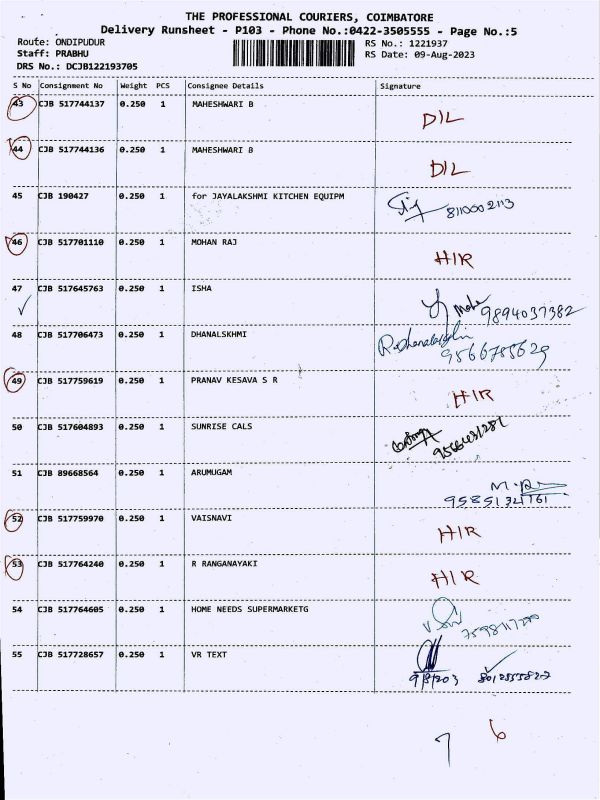 THE PROFESSIONAL COURIERS, COIMBATORE
Delivery Runsheet - P103 - Phone No.:0422-3505555 - Page No.:5
Route: ONDIPUDUR RS No.: 1221937
Staff: PRABHU RS Date: 09-Aug-2023
DRS No.: DCJB122193705
S No Consignment No Weight PCS Consignee Details Signature
43 CJB 517744137 0.250 1 MAHESHWARI B DIL
44 CJB 517744136 0.250 1 MAHESHWARI B DIL
45 CJB 190427 0.250 1 for JAYALAKSHMI KITCHEN EQUIPM 8110002113
46 CJB 517701110 0.250 1 MOHAN RAJ HIR
47 CJB 517645763 0.250 1 ISHA 9894037382
48 CJB 517706473 0.250 1 DHANALSKHMI
9566785629
49 CJB 517759619 0.250 1 PRANAV KESAVA S R HIR
50 CJB 517604893 0.250 1 SUNRISE CALS
51 CJB 89668564 0.250 1 ARUMUGAM
52 CJB 517759970 0.250 1 VAISNAVI HIR
53 CJB 517764240 0.250 1 R RANGANAYAKI HIR
54 CJB 517764605 0.250 1 HOME NEEDS SUPERMARKETG
55 CJB 517728657 0.250 1 VR TEXT
7 6